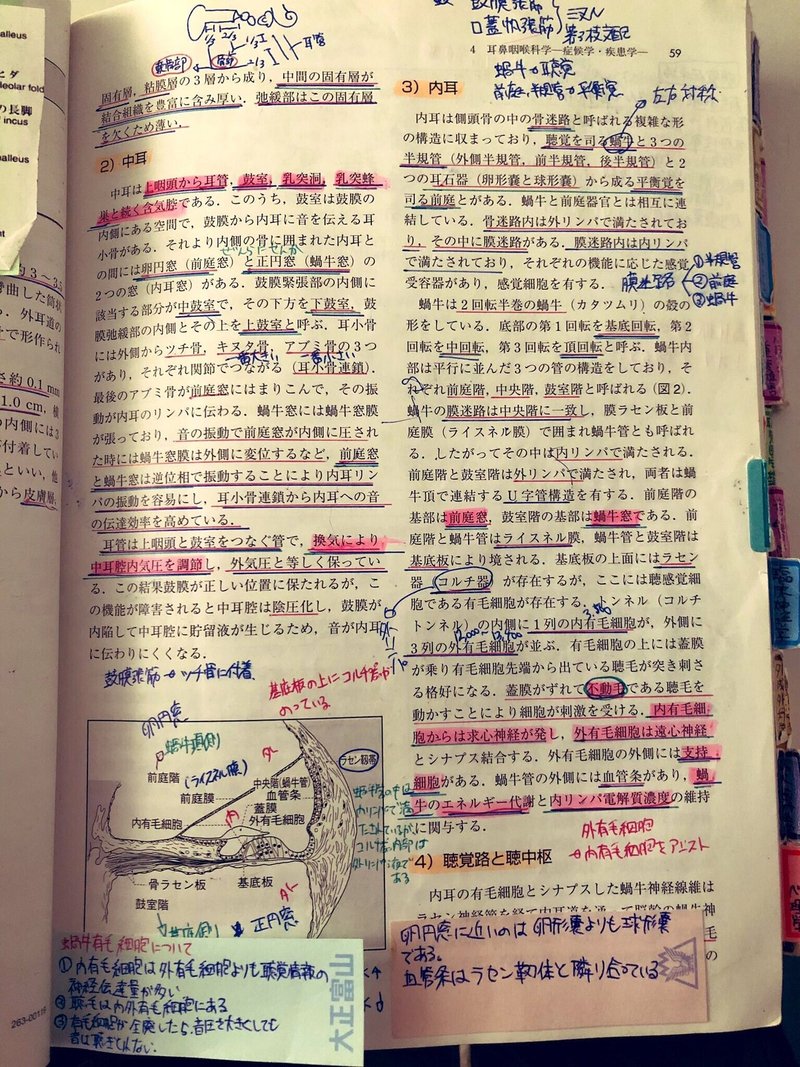 4 耳鼻咽喉科学―症候学・疾患学―　59
固有層，粘膜層の3層から成り，中間の固有層が
結合組織を豊富に含み厚い．弛緩部はこの固有層
を欠くため薄い．
2）中耳
中耳は上咽頭から耳管，鼓室，乳突洞，乳突蜂
巣と続く含気腔である．このうち，鼓室は鼓膜の
内側にある空間で，鼓膜から内耳に音を伝える耳
小骨がある．それより内側の骨に囲まれた内耳と
の間には卵円窓（前庭窓）と正円窓（蝸牛窓）の
2つの窓（内耳窓）がある．鼓膜緊張部の内側に
該当する部分が中鼓室で，その下方を下鼓室，鼓
膜弛緩部の内側とその上を上鼓室と呼ぶ．耳小骨
には外側からツチ骨，キヌタ骨，アブミ骨の3つ
一番大きい　一番小さい
があり，それぞれ関節でつながる（耳小骨連鎖）．
最後のアブミ骨が前庭窓にはまりこんで，その振
動が内耳のリンパに伝わる．蝸牛窓には蝸牛窓膜
が張っており，音の振動で前庭窓が内側に圧され
た時には蝸牛窓膜は外側に変位するなど，前庭窓
と蝸牛窓は逆位相で振動することにより内耳リン
パの振動を容易にし，耳小骨連鎖から内耳への音
の伝達効率を高めている．
耳管は上咽頭と鼓室をつなぐ管で，換気により
中耳腔内気圧を調節し，外気圧と等しく保ってい
る．この結果鼓膜が正しい位置に保たれるが，こ
の機能が障害されると中耳腔は陰圧化し，鼓膜が
内陥して中耳腔に貯留液が生じるため，音が内耳
に伝わりにくくなる．
鼓膜張筋→ツチ骨に付着
基底板の上にコルチ器が
のっている
卵円窓
蝸牛頂側
前庭階
（ライスネル膜）
前庭膜
内有毛細胞
中央階（蝸牛管）
血管条
蓋膜
外有毛細胞
ラセン靱帯
骨ラセン板
基底板
鼓室階
正円窓
蝸牛有毛細胞について
①内有毛細胞は外有毛細胞よりも聴覚情報の
神経伝達量が多い
②聴毛は内外有毛細胞にある
③有毛細胞が全廃したら，音圧を大きくしても
音は聴きとれない．
大正富山
263-001
蝸牛が聴覚
前庭，半規管が平衡覚
左右対称
3）内耳
内耳は側頭骨の中の骨迷路と呼ばれる複雑な形
の構造に収まっており，聴覚を司る蝸牛と3つの
半規管（外側半規管，前半規管，後半規管）と2
つの耳石器（卵形嚢と球形嚢）から成る平衡覚を
司る前庭とがある．蝸牛と前庭器官とは相互に連
結している．骨迷路内は外リンパで満たされてお
り，その中に膜迷路がある．膜迷路内は内リンパ
で満たされており，それぞれの機能に応じた感覚
受容器があり，感覚細胞を有する．
膜迷路
①半規管
②前庭
③蝸牛
蝸牛は2回転半巻の蝸牛（カタツムリ）の殻の
形をしている．底部の第1回転を基底回転，第2
回転を中回転，第3回転を頂回転と呼ぶ．蝸牛内
部は平行に並んだ3つの管の構造をしており，そ
れぞれ前庭階，中央階，鼓室階と呼ばれる（図2）．
蝸牛の膜迷路は中央階に一致し，膜ラセン板と前
庭膜（ライスネル膜）で囲まれ蝸牛管とも呼ばれ
る．したがってその中は内リンパで満たされる．
前庭階と鼓室階は外リンパで満たされ，両者は蝸
牛頂で連結するU字管構造を有する．前庭階の
基部は前庭窓，鼓室階の基部は蝸牛窓である．前
庭階と蝸牛管はライスネル膜，蝸牛管と鼓室階は
基底板により境される．基底板の上面にはラセン
器（コルチ器）が存在するが，ここには聴感覚細
胞である有毛細胞が存在する．トンネル（コルチ
トンネル）の内側に1列の内有毛細胞が，外側に
3列の外有毛細胞が並ぶ．有毛細胞の上には蓋膜
が乗り有毛細胞先端から出ている聴毛が突き刺さ
る格好になる．蓋膜がずれて不動毛である聴毛を
動かすことにより細胞が刺激を受ける．内有毛細
胞からは求心神経が発し，外有毛細胞は遠心神経
とシナプス結合する．外有毛細胞の外側には支持
細胞がある．蝸牛管の外側には血管条があり，蝸
牛のエネルギー代謝と内リンパ電解質濃度の維持
に関与する．
外有毛細胞
→内有毛細胞をアシスト
4）聴覚路と聴中枢
内耳の有毛細胞とシナプスした蝸牛神経線維は
卵円窓に近いのは卵形嚢よりも球形嚢
である．
血管条はラセン靭体と隣り合っている